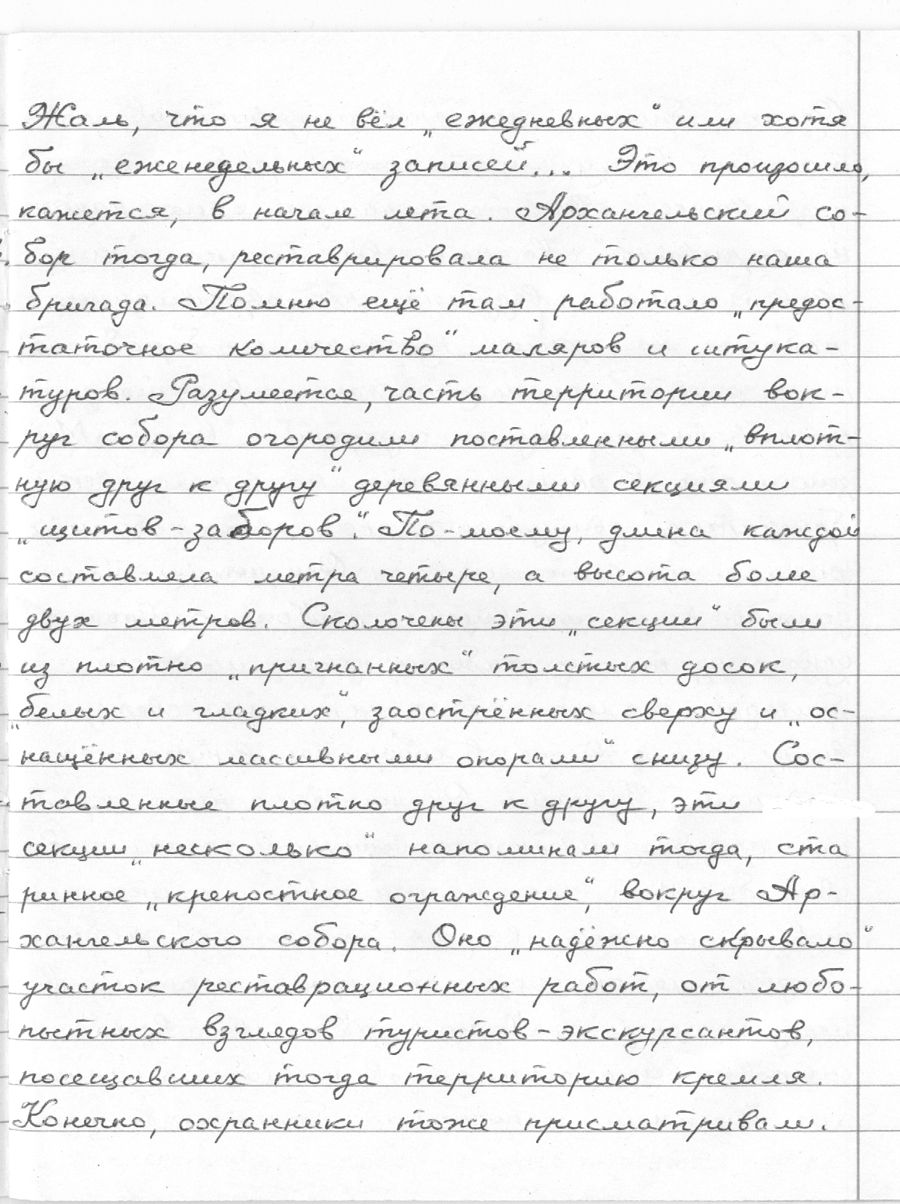 Жаль, что я не вёл „ежедневных“ или хотя
бы „еженедельных“ записей... Это произошло,
кажется, в начале лета. Архангельский со-
бор тогда, реставрировала не только наша
бригада. Помню ещё там работало „предос-
таточное количество“ маляров и штука-
туров. Разумеется, часть территории вок-
руг собора огородили поставленными „вплот-
ную друг к другу“ деревянными секциями
„щитов-заборов“. По-моему, длина каждой
составляла метра четыре, а высота более
двух метров. Сколочены эти „секции“ были
из плотно „пригнанных“ толстых досок,
„белых и гладких“, заострённых сверху и „ос-
нащённых массивными опорами“ снизу. Сос-
тавленные плотно друг к другу, эти
секции „несколько“ напоминали тогда, ста
ринное „крепостное ограждение“, вокруг Ар-
хангельского собора. Оно „надёжно скрывало“
участок реставрационных работ, от любо-
пытных взглядов туристов-экскурсантов,
посещавших тогда территорию кремля.
Конечно, охранники тоже присматривали.